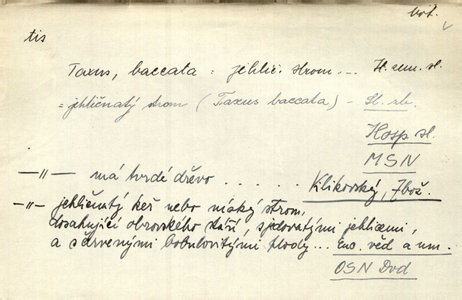 bot.
tis
Taxus, baccata = jehlič. strom... Sl. zem. sl.
= jehličnatý strom (Taxus baccata) – Sl. sb.
Hosp. sl.
MSN
—"— má tvrdé dřevo . . . . . Klikorský, Zbož.
—"— jehličnatý keř nebo nízký strom,
dosahující obrovského stáří, s jedovatými jehlicemi,
a s červenými bobulovitými plody... Enc. věd a um.
OSN Dod